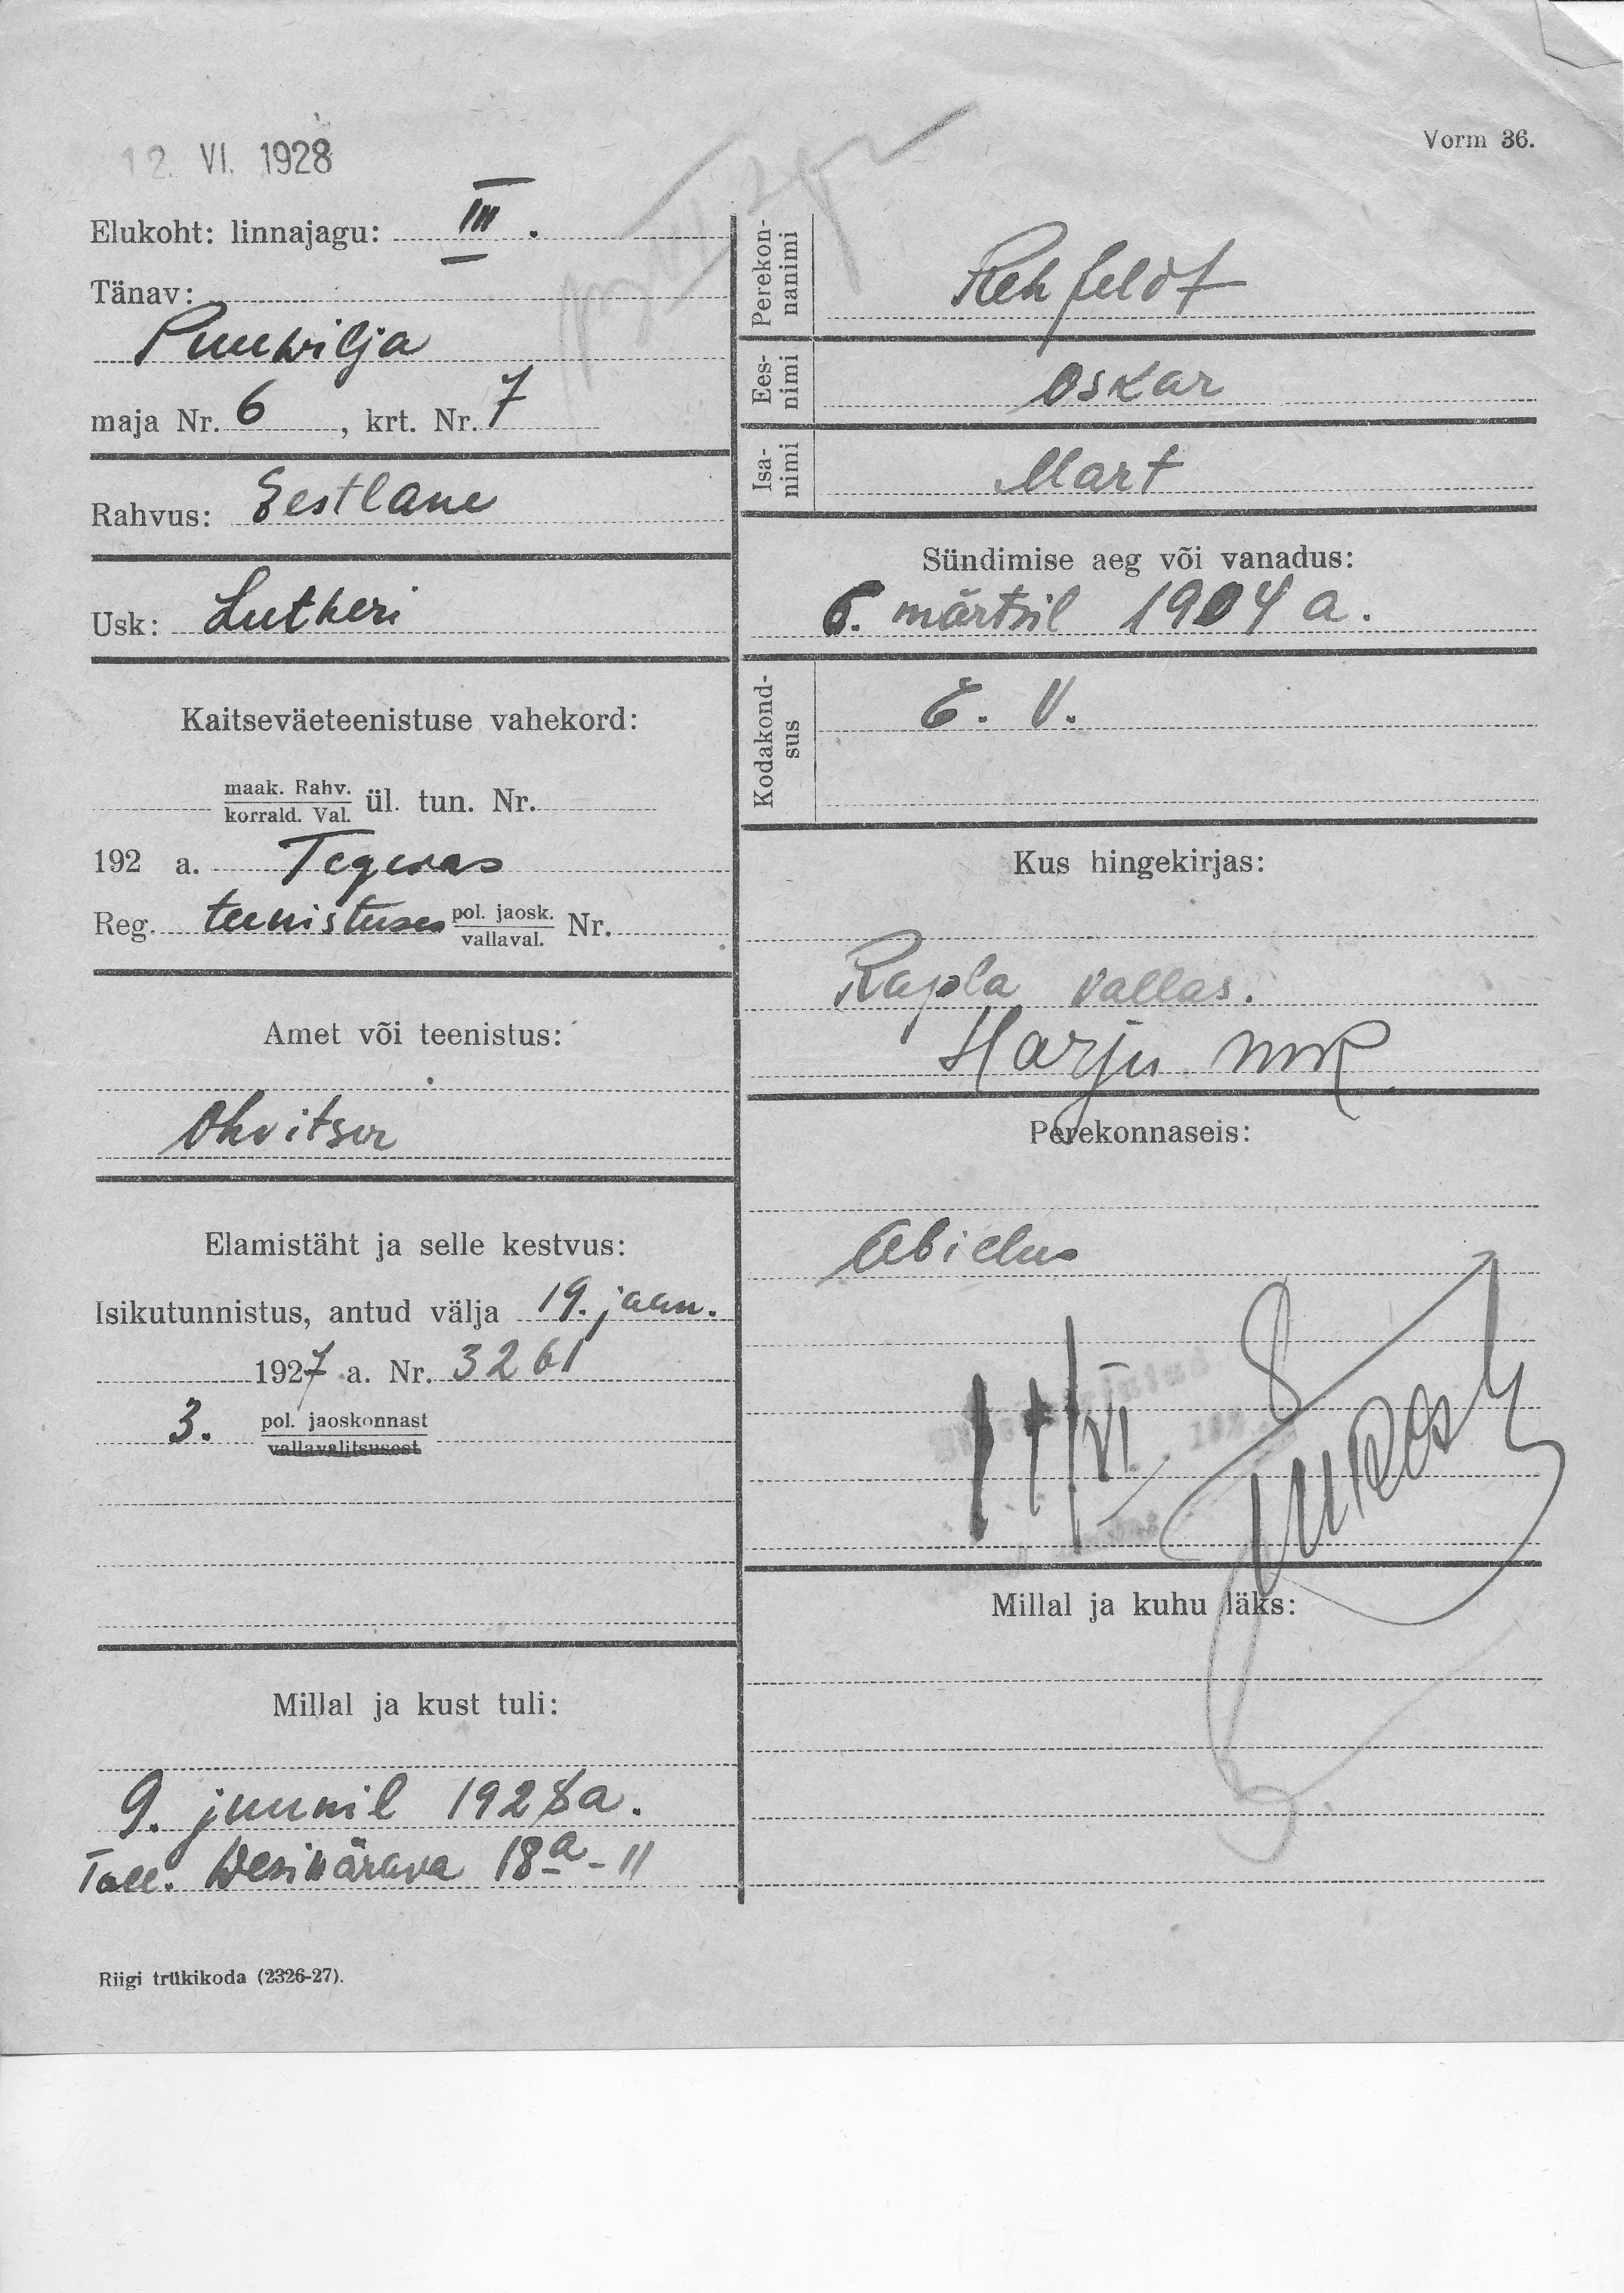 12. VI. 1928
Vorm 36.
Elukoht: linnajagu: III.
Tänav:
Puuwilja
maja Nr. 6, krt. Nr. 7
Rahvus: Eestlane
Usk: Lutheri
Kaitseväeteenistuse vahekord:
maak. Rahv.
korrald. Val. ül. tun. Nr.
192 a. Tegevas
Reg. teenistuses pol. jaosk.
vallaval. Nr.
Amet või teenistus:
Ohvitser
Elamistäht ja selle kestvus:
Isikutunnistus, antud välja 19. jaan.
1927 a. Nr. 3261
3. pol. jaoskonnast
vallavalitsusest
Millal ja kust tuli:
9. juunil 1928 a.
Tall. Wesiwärava 18a-11
Riigi trükikoda (2326-27).
Perekon-
nanimi
Rehfeldt
Ees-
nimi
Oskar
Isa-
nimi
Mart
Sündimise aeg või vanadus:
6. märtsil 1904 a.
Kodakond-
sus
E. V.
Kus hingekirjas:
Rapla vallas.
Harju mk
Perekonnaseis:
Abielus
Millal ja kuhu läks: